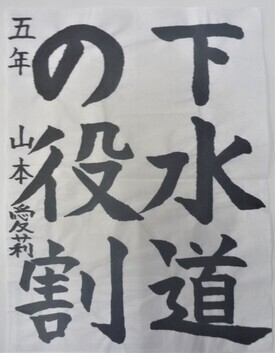 下水道
の役割
五年 山本愛莉